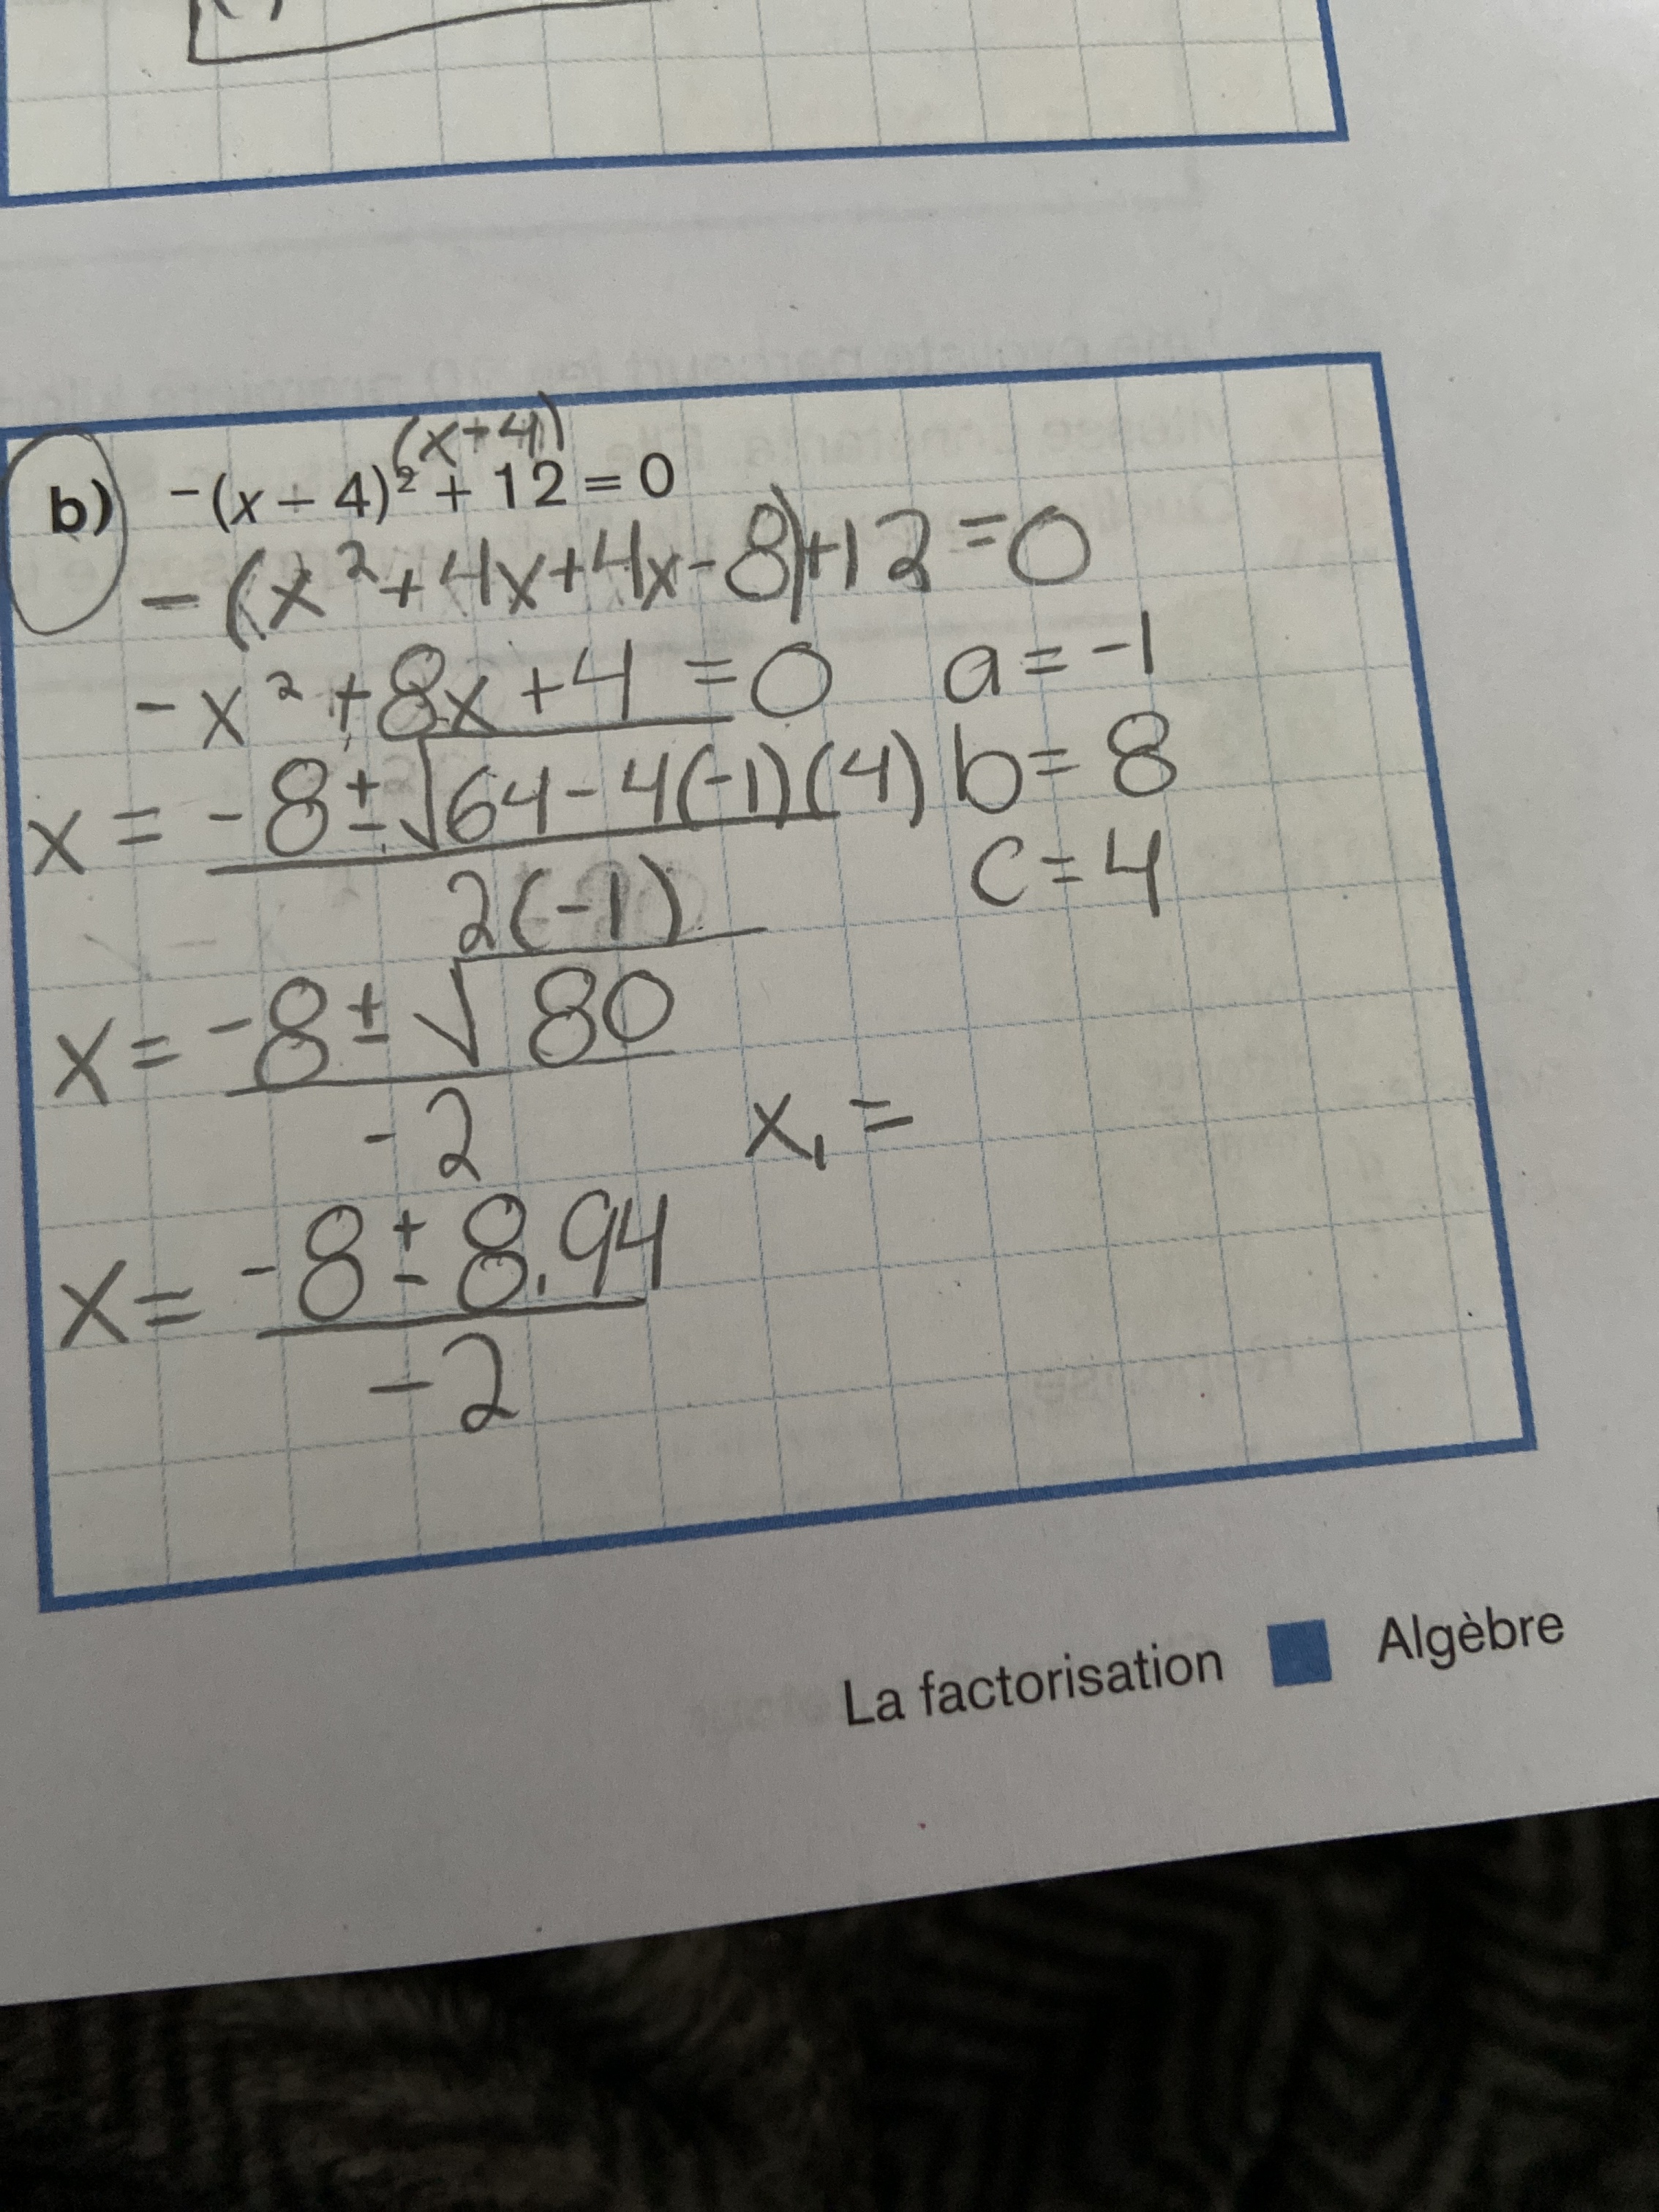 b) -(x + 4)² + 12 = 0
(x+4)
-(x²+4x+4x-8)+12=0
-x²+8x+4=0 a=-1
x = -8±√64-4(-1)(4) b=8
2(-1) c=4
x = -8±√80
-2 x₁ =
x = -8±8.94
-2
La factorisation ■ Algèbre